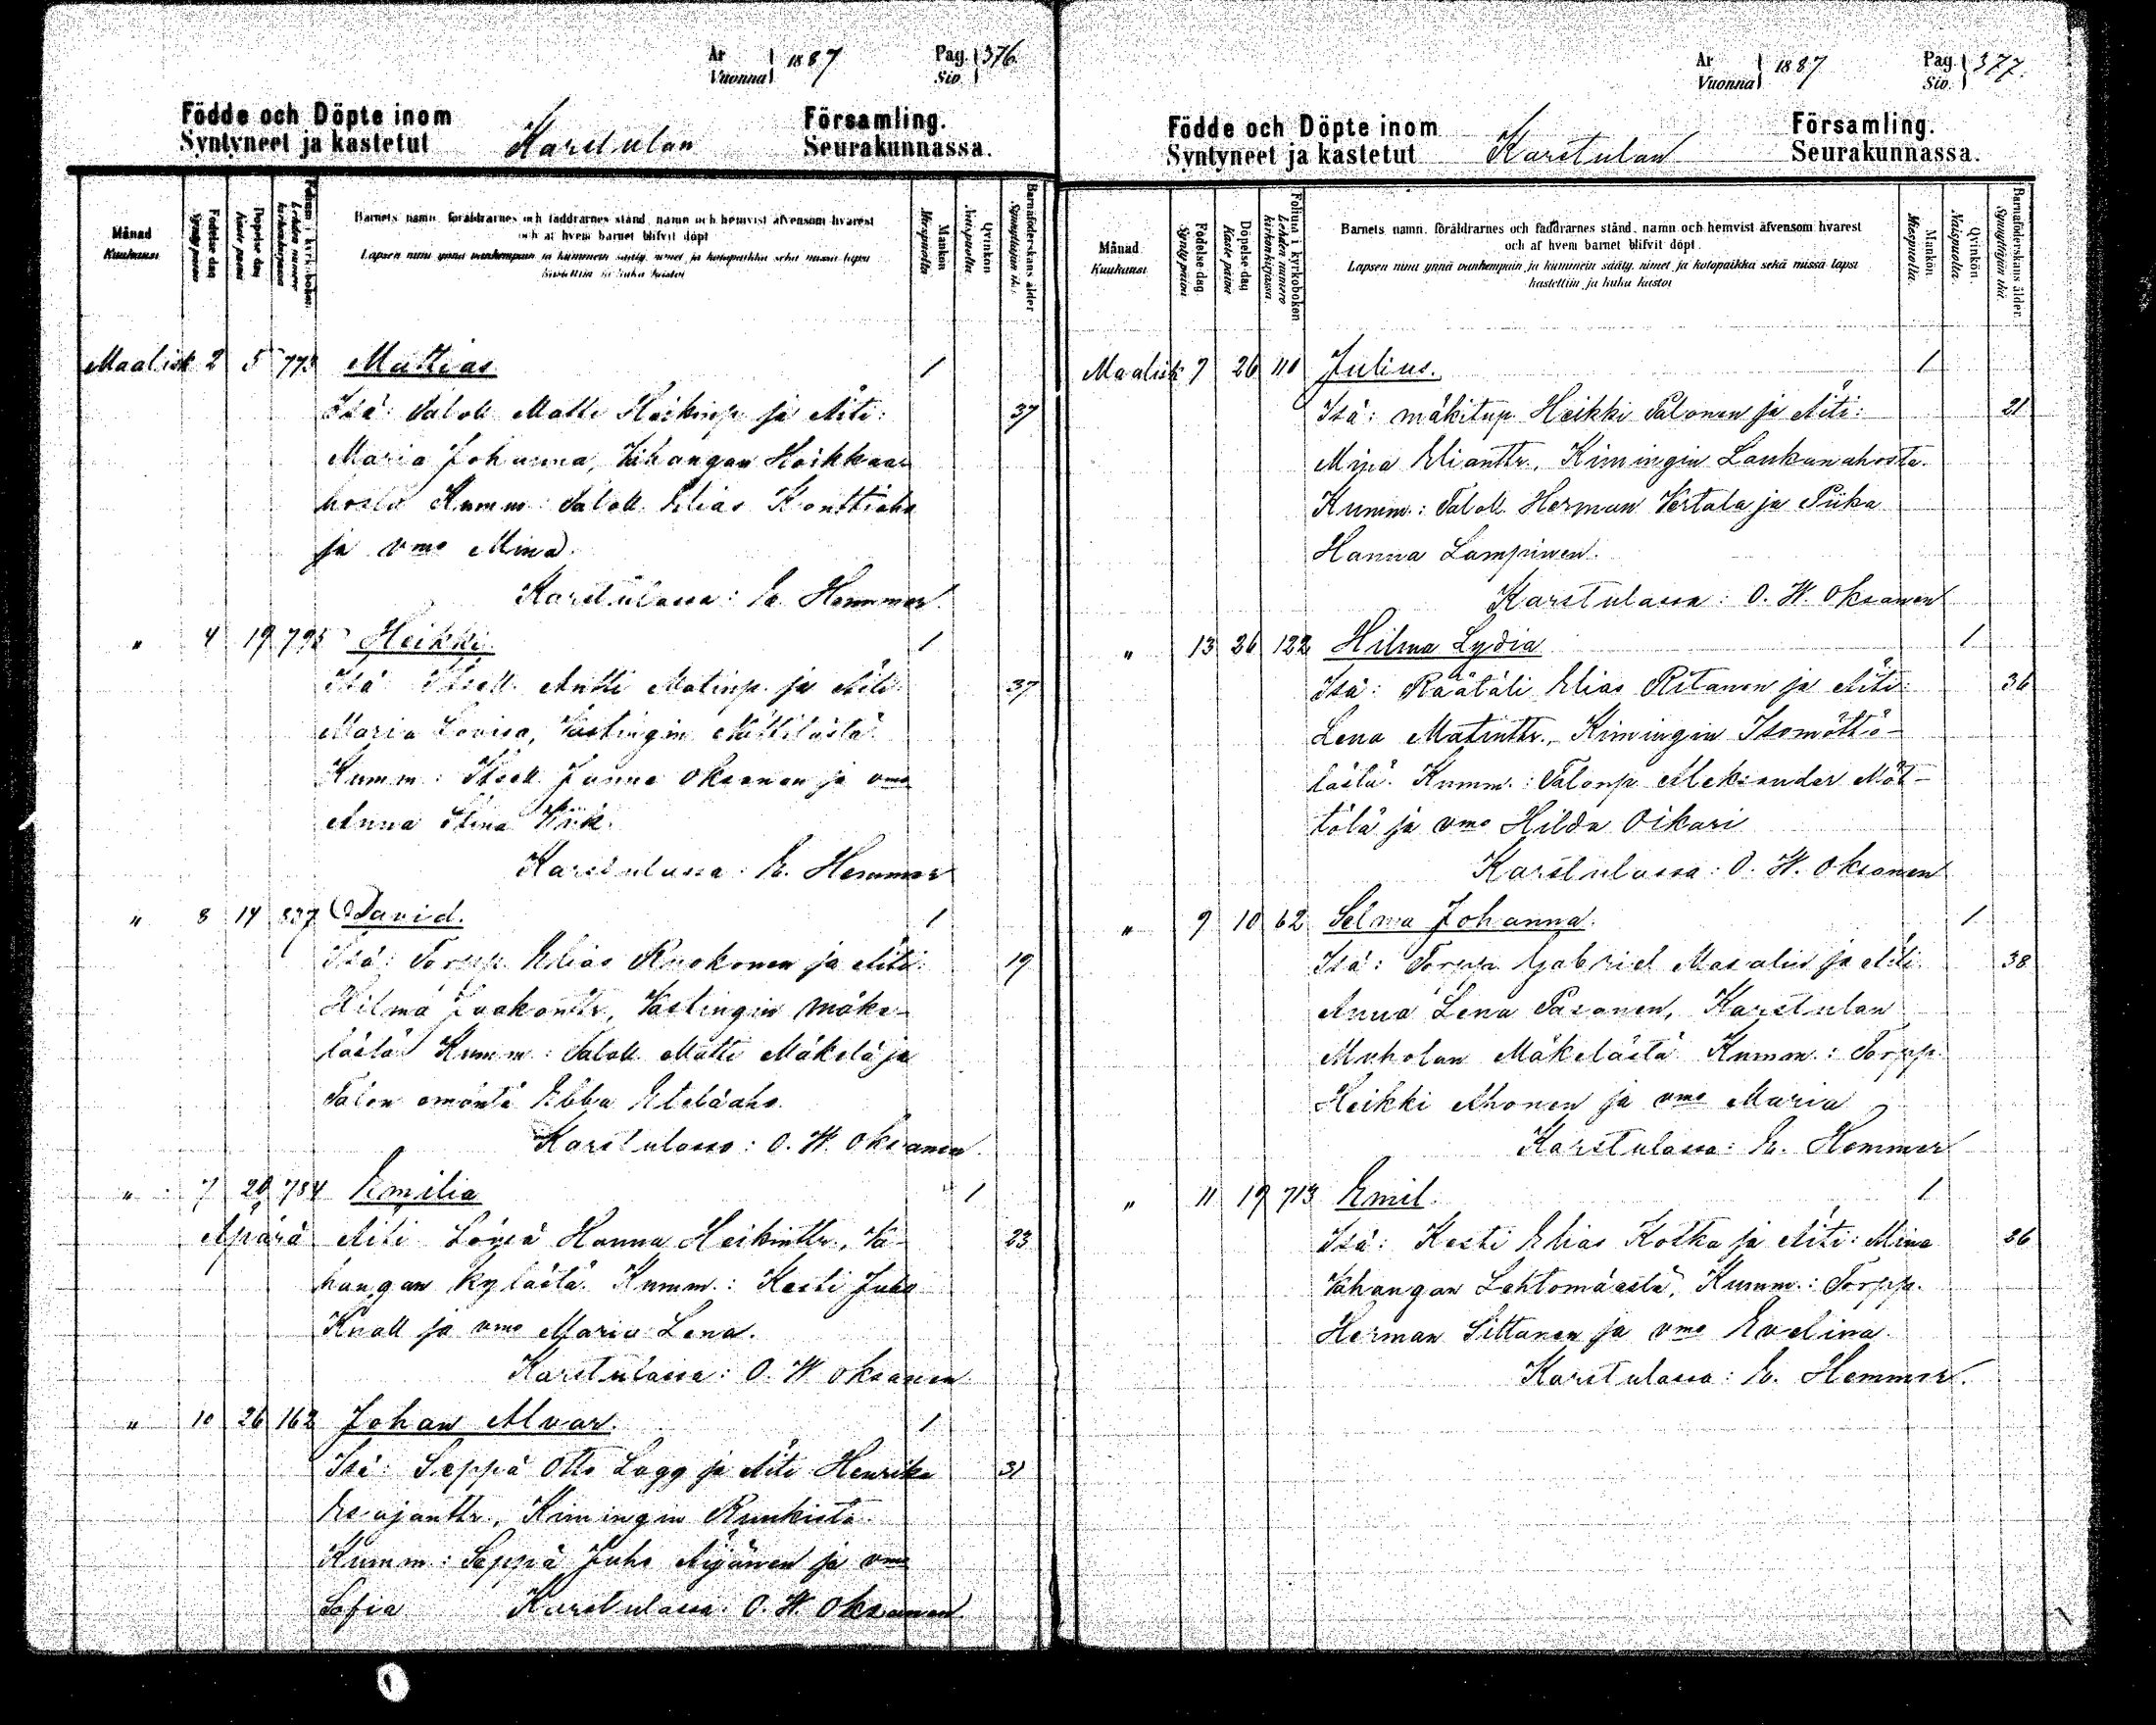 År Vuonna 1887 Pag. Siv. 376.
Födde och Döpte inom Församling.
Syntyneet ja kastetut Karstulan Seurakunnassa.
Månad Kuukausi
Födelse dag Synty päivä
Döpelse dag Kaste päivä
Folium i kyrkoboken Lehden numero kirkonkirjassa
Barnets namn, föräldrarnes och faddrarnes stånd, namn och hemvist äfvensom hvarest
och af hvem barnet blifvit döpt
Lapsen nimi ynnä vanhempain ja kummein sääty, nimet ja kotopaikka sekä missä lapsi
kastettiin ja kuka kastoi
Mankön Miespuolta
Qvinkön Naispuolta
Barnaföderskans ålder Synnyttäjän ikä
Maalisk 2 5 773 Mattias 1
Isä: Taloll. Matti Heikinp. ja Äiti: 37
Maria Johanna, Vahangan Hoikkaa-
hosta Kumm: Taloll. Elias Konttiaho
ja vmo Mina.
Karstulassa: E. Hemmer.
" 4 19 795 Heikki 1
Isä Itsell. Antti Matinp. ja Äiti 37
Maria Lovisa, Vastingin
Kumm: Itsell. Janne Oksanen ja vmo
Anna Stina
Karstulassa: E. Hemmer
" 8 14 837 David. 1
Isä: Torpp. Elias Ruokonen ja Äiti: 19
Hilma Jaakontr, Vastingin Mäke-
lästä Kumm: Taloll Matti Mäkelä ja
Talon emäntä Ebba Eteläaho
Karstulassa: O. W. Oksanen.
" 7 20 784 Emilia 1
Äpärä Äiti Loisia Hanna Heikintr., Va- 23
hangan kylästä. Kumm.: Kesti Juho
Knall ja vmo Maria Lena.
Karstulassa: O. W. Oksanen
" 10 26 162 Johan Alvar. 1
Isä: Seppä Otto Lagg ja Äiti Henrika 31
Esajanttr., Kimingin Runkista.
Kumm: Seppä Juho Äijänen ja vmo
Sofia Karstulassa: O. W. Oksanen.
År Vuonna 1887 Pag. Siv. 377.
Födde och Döpte inom Församling.
Syntyneet ja kastetut Karstulan Seurakunnassa.
Månad Kuukausi
Födelse dag Synty päivä
Döpelse dag Kaste päivä
Folium i kyrkoboken Lehden numero kirkonkirjassa.
Barnets namn, föräldrarnes och faddrarnes stånd, namn och hemvist äfvensom hvarest
och af hvem barnet blifvit döpt.
Lapsen nimi ynnä vanhempain ja kummein sääty, nimet ja kotopaikka sekä missä lapsi
kastettiin ja kuka kastoi
Mankön. Miespuolta.
Qvinkön. Naispuolta.
Barnaföderskans ålder. Synnyttäjän ikä.
Maalisk 7 26 110 Julius. 1
Isä: mäkitup. Heikki Palonen ja Äiti: 21
Mina Elianttr., Kimingin Laukunahosta.
Kumm.: Taloll. Herman Vertala ja Piika
Hanna Lampinen.
Karstulassa: O. W. Oksanen
" 13 26 122 Hilma Lydia 1
Isä: Räätäli Elias Ritanen ja Äiti: 36
Lena Matinttr., Kimingin Isomöttö-
lästä. Kumm.: Talonp. Aleksander Möt-
tölä ja vmo Hilda Oikari
Karstulassa: O. W. Oksanen
" 9 10 62 Selma Johanna. 1
Isä: Torpp. Gabriel Masalin ja Äiti 38
Anna Lena Pasanen, Karstulan
Muholan Mäkelästä Kumm.: Torpp.
Heikki Ahonen ja vmo Maria
Karstulassa: E. Hemmer
" 11 19 713 Emil. 1
Isä: Kesti Elias Kotka ja Äiti: Mina 26
Vahangan Lehtomäestä, Kumm.: Torpp.
Herman Sittanen ja vmo Evelina.
Karstulassa: E. Hemmer.